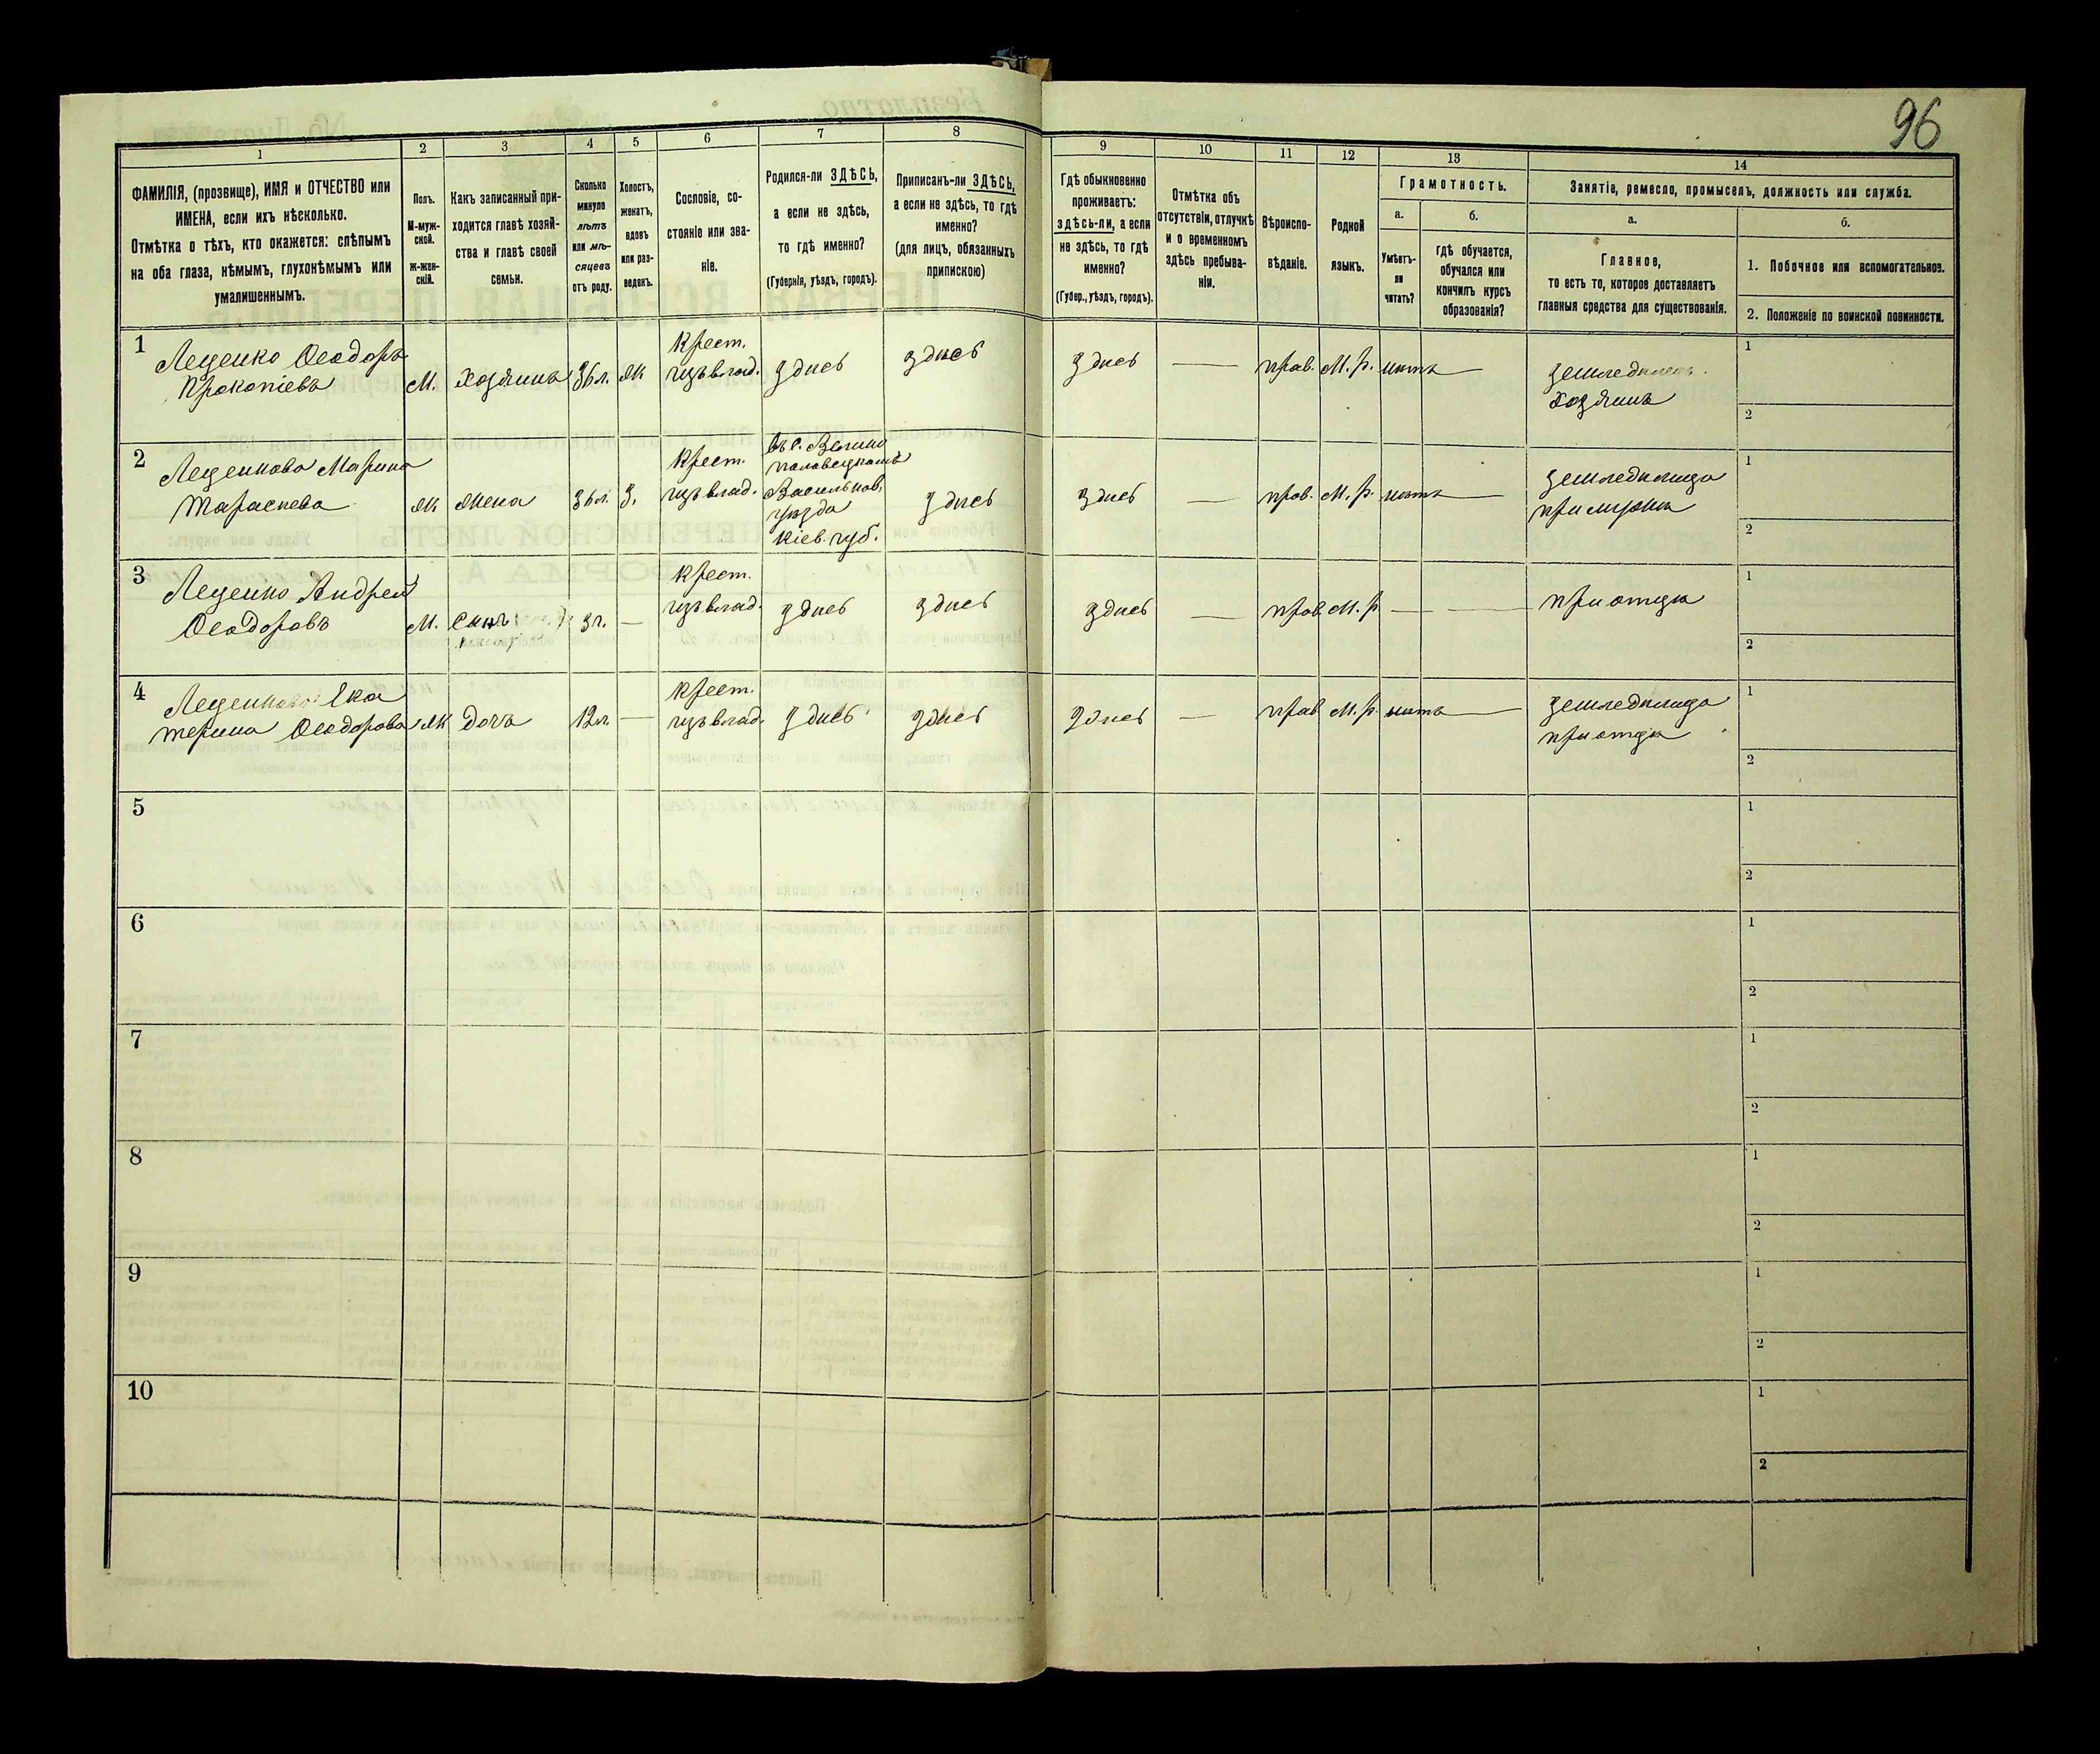 96
1
2
3
4
5
6
7
8
9
10
11
12
13
14
ФАМИЛІЯ, (прозвище), ИМЯ и ОТЧЕСТВО или
ИМЕНА, если ихъ нѣсколько.
Отмѣтка о тѣхъ, кто окажется: слѣпымъ
на оба глаза, нѣмымъ, глухонѣмымъ или
умалишеннымъ.
Полъ.
М-муж-
ской.
Ж-жен-
скій.
Какъ записанный при-
ходится главѣ хозяй-
ства и главѣ своей
семьи.
Сколько
минуло
лѣтъ
или мѣ-
сяцевъ
отъ роду.
Холостъ,
женатъ,
вдовъ
или раз-
веденъ.
Сословіе, со-
стояніе или зва-
ніе.
Родился-ли ЗДѢСЬ,
а если не здѣсь,
то гдѣ именно?
(Губернія, уѣздъ, городъ).
Приписанъ-ли ЗДѢСЬ,
а если не здѣсь, то гдѣ
именно?
(для лицъ, обязанныхъ
припискою)
Гдѣ обыкновенно
проживаетъ:
ЗДѢСЬ-ли, а если
не здѣсь, то гдѣ
именно?
(Губер., уѣздъ, городъ).
Отмѣтка объ
отсутствіи, отлучкѣ
и о временномъ
здѣсь пребыва-
ніи.
Вѣроиспо-
вѣданіе.
Родной
языкъ.
Грамотность.
а.
б.
Умѣетъ-
ли
читать?
гдѣ обучается,
обучался или
кончилъ курсъ
образованія?
Занятіе, ремесло, промыселъ, должность или служба.
а.
б.
Главное,
то есть то, которое доставляетъ
главныя средства для существованія.
1. Побочное или вспомогательное.
2. Положеніе по воинской повинности.
1 Лещенко Ѳеодоръ
Прокопіевъ
М. Хозяинъ 36 л. Ж
Крест.
изъ влад. здесь здесь здесь — прав. М. р. нѣтъ —
земледѣлецъ
хозяинъ
1
2
2 Лещенкова Марина
Тарасиева
Ж жена 36 л. З.
Крест.
изъ влад.
въ с.
Половецкомъ
Васильков.
уѣзда
Кіев. губ.
здесь здесь — прав. М. р. нѣтъ —
земледѣлица
при мужѣ
1
2
3 Лещенко Андрей
Ѳеодоровъ
М. Сынъ
3 г. —
Крест.
изъ влад. здесь здесь здесь — прав М. р. — —
при отцѣ
1
2
4 Лещенкова Ека
терина Ѳеодорова
Ж дочь 12 л —
Крест.
изъ влад. здесь здесь здесь — прав М. р. нѣтъ —
земледѣлица
при отцѣ
1
2
5
1
2
6
1
2
7
1
2
8
1
2
9
1
2
10
1
2